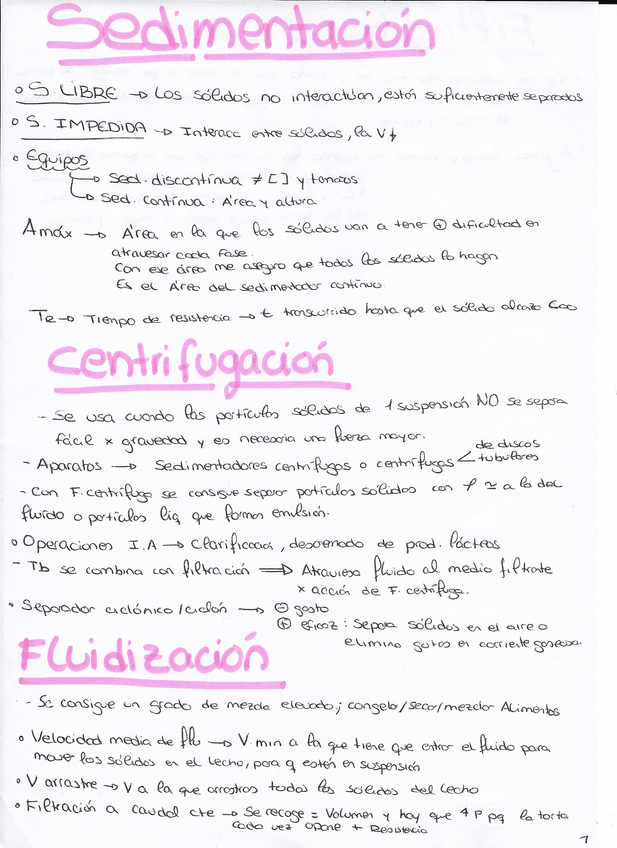 Sedimentación
o S. LIBRE → Los sólidos no interactúan, están suficientemente separados
o S. IMPEDIDA → Interacc entre sólidos, la V↓
o Equipos
→ Sed. discontinua ≠ [] y tamaños
→ Sed. continua : Área y altura
Amáx → Área en la que los sólidos van a tener ⊕ dificultad en
atravesar cada fase.
Con ese área me aseguro que todos los sólidos lo hagan
Es el Área del sedimentador contínuo.
→ Tiempo de resistencia → t transcurrido hasta que el sólido alcanza
Centrifugación
- Se usa cuando las partículas sólidas de 1 suspensión NO se separa
fácil x gravedad y es necesaria una fuerza mayor.
- Aparatos → Sedimentadores centrífugos o centrífugas < de discos
tubulares
- Con F. centrífuga se consigue separar partículos sólidos con ρ ≃ a la del
fluido o partículas liq que forman emulsión.
o Operaciones I.A → Clarificación, desnatado de prod. lácteos
- Tb se combina con filtración ⟹ Atraviesa fluido al medio filtrante
x acción de F. centrífuga.
• Separador ciclónico/ciclón → ⊖ gasto
⊕ eficaz : Separa sólidos en el aire o
elimina gotas en corriente gaseosa.
Fluidización
- Se consigue un grado de mezcla elevado; congelar/secar/mezclar Alimentos
o Velocidad media de flu → V. min a la que tiene que entrar el fluido para
mover los sólidos en el lecho, para q estén en suspensión
o V arrastre → V a la que arrastras todos los sólidos del lecho
o Filtración a caudal cte → Se recoge = Volumen y hay que ↑ P pq la torta
cada vez opone + Resistencia
1